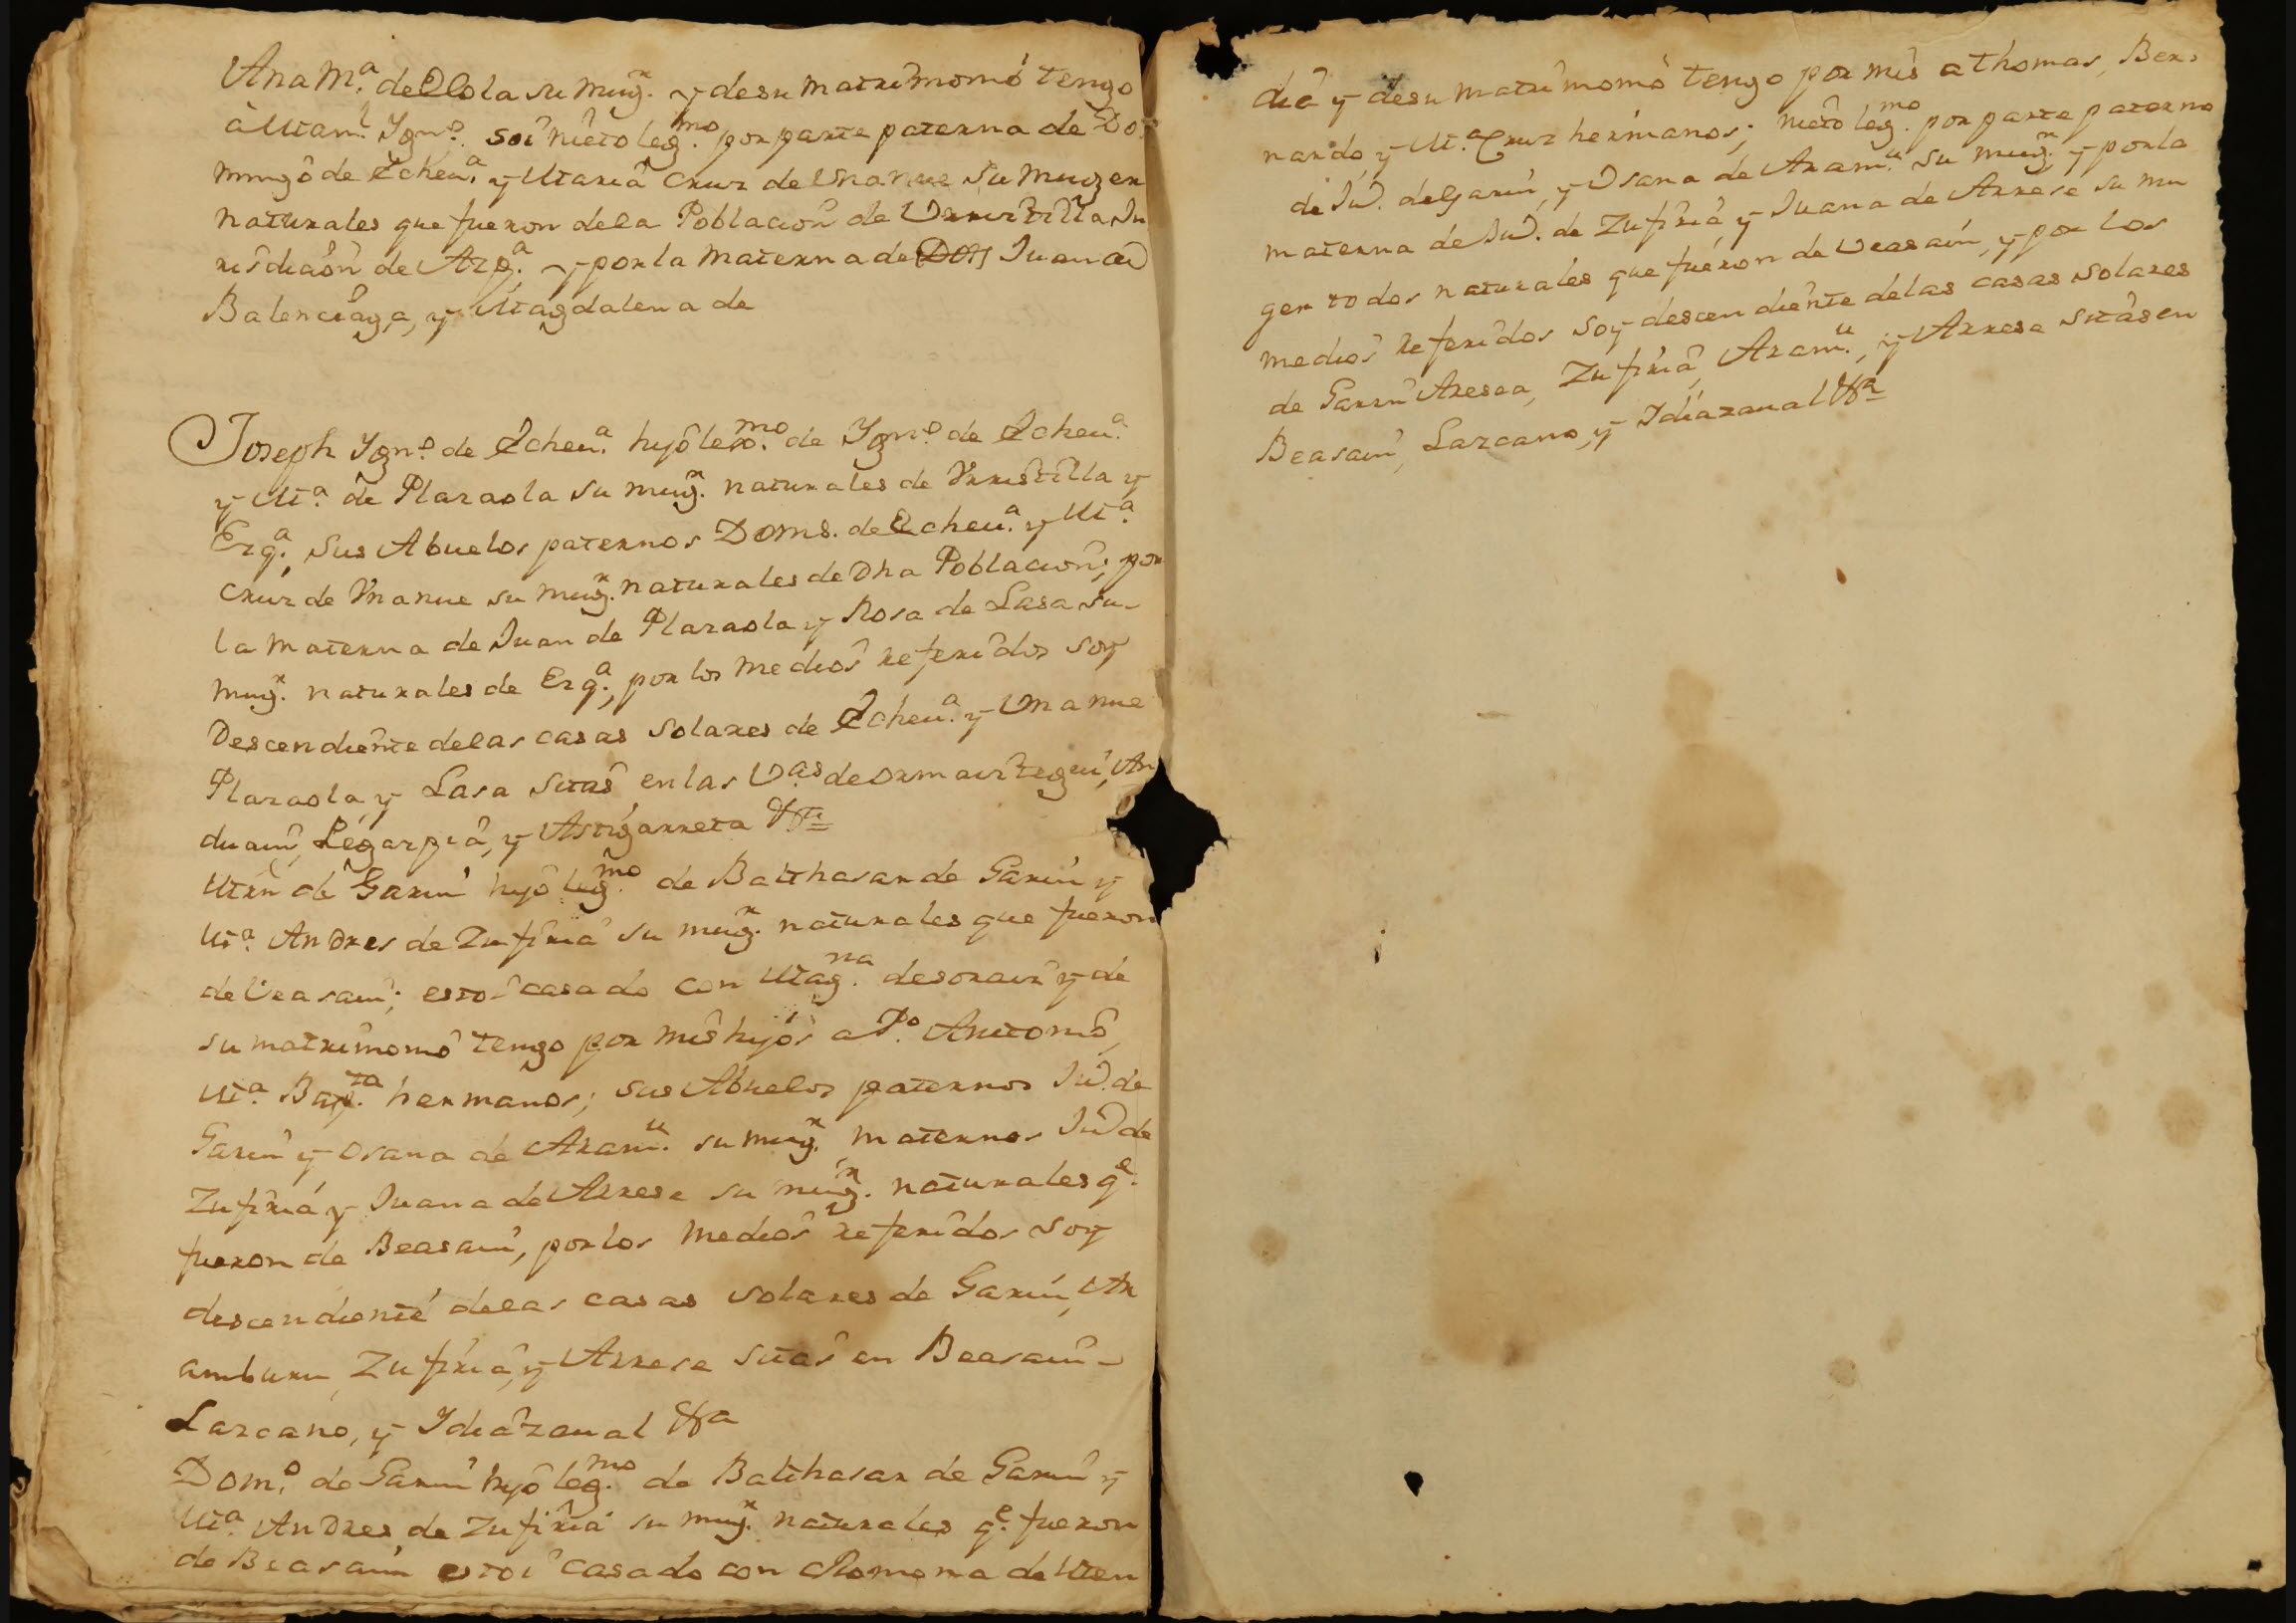 Ana M.ª de Olola su mug.r y de su matrimonio tengo
à Man.l Ygn.o. soi nieto leg.mo por parte paterna de Do
mingo de Echeu.a y Maria Cruz de Vnanue su muger
naturales que fueron de la Poblacion de Vrrestilla Ju
risdicion de Azp.a y por la materna de Juan de
Balenciaga, y Magdalena de
Joseph Ygn.o de Echeu.a hijo lexmo. de Ygn.o de Echeu.a
y M.a de Plazaola su mug.r naturales de Vrrestilla y
Ezq.a, sus Abuelos paternos Doms. de Echeu.a y M.a
Cruz de Vnanue su mug.r naturales de Dha Poblacion; por
la materna de Juan de Plazaola y Rosa de Lasa su
mug.r naturales de Ezq.a, por los medios referidos soy
Descendiente de las casas solares de Echeu.a y Vnanue
Plazaola, y Lasa sitas en las V.as de Ormaiztegui, An
duain, Legazpia, y Astigarreta &a
Mrn de Garin hijo leg.mo de Balthasar de Garin y
M.a Andres de Zufiria su mug.r naturales que fueron
de Veasain; estoi casado con Mag.na de soraiz y de
su matrimonio tengo por mis hijos a P.o Antonio,
M.a Bap.ta hermanos; sus Abuelos paternos Ju.o de
Garin y Osana de Aram.u su mug.r, maternos Ju.o de
Zufiria y Juana de Arrese su mug.r naturales q.e
fueron de Beasain, por los medios referidos soy
descendiente de las casas solares de Garin, Ar
amburu, Zufiria, y Arrese sitas en Beasain
Lazcano, y Idiazaual &a
Dom.o de Garin hijo leg.mo de Balthasar de Garin y
M.a Andres de Zufiria su mug.r naturales q.e fueron
de Beasain estoi casado con Romona de Men
dia y de su matrimonio tengo por mis a thomas, Ber
nardo, y M.a Cruz hermanos; nieto leg.mo por parte paterno
de Ju.o de Garin, y Osana de Aram.u su mug.r y por la
materna de Ju.o de Zufiria y Juana de Arrese su mu
ger todos naturales que fueron de Veasain, y por los
medios referidos soy descendiente de las casas solares
de Garin Aresea, Zufiria, Aram.u, y Arrese sitas en
Beasain, Lazcano, y Idiazaual &a